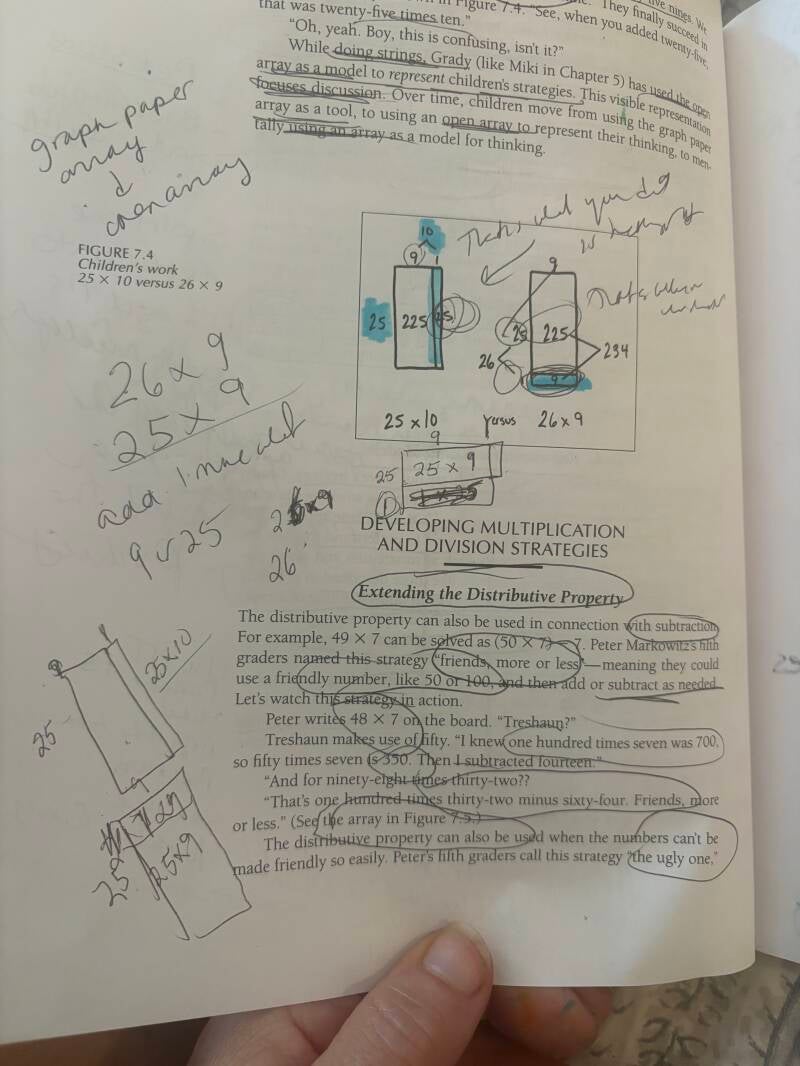 five nines. We
They finally succeed in
in Figure 7.4. "See, when you added twenty-five,
that was twenty-five times ten."
"Oh, yeah. Boy, this is confusing, isn't it?"
While doing strings, Grady (like Miki in Chapter 5) has used the open
array as a model to represent children's strategies. This visible representation
focuses discussion. Over time, children move from using the graph paper
array as a tool, to using an open array to represent their thinking, to men-
tally using an array as a model for thinking.
graph paper
array
open array
FIGURE 7.4
Children's work
25 × 10 versus 26 × 9
10
9 1
25 225 25
9
25 225
26 234
9
25 x 10 versus 26 x 9
26 x 9
25 x 9
add 1 more
9 25
26
9
25 25 x 9
1
DEVELOPING MULTIPLICATION
AND DIVISION STRATEGIES
Extending the Distributive Property
The distributive property can also be used in connection with subtraction.
For example, 49 × 7 can be solved as (50 × 7) – 7. Peter Markowitz's fifth
graders named this strategy "friends, more or less"—meaning they could
use a friendly number, like 50 or 100, and then add or subtract as needed.
Let's watch this strategy in action.
Peter writes 48 × 7 on the board. "Treshaun?"
Treshaun makes use of fifty. "I knew one hundred times seven was 700,
so fifty times seven is 350. Then I subtracted fourteen."
"And for ninety-eight times thirty-two??
"That's one hundred times thirty-two minus sixty-four. Friends, more
or less." (See the array in Figure 7.5.)
The distributive property can also be used when the numbers can't be
made friendly so easily. Peter's fifth graders call this strategy "the ugly one,"
25x10
25
9
25
25x9